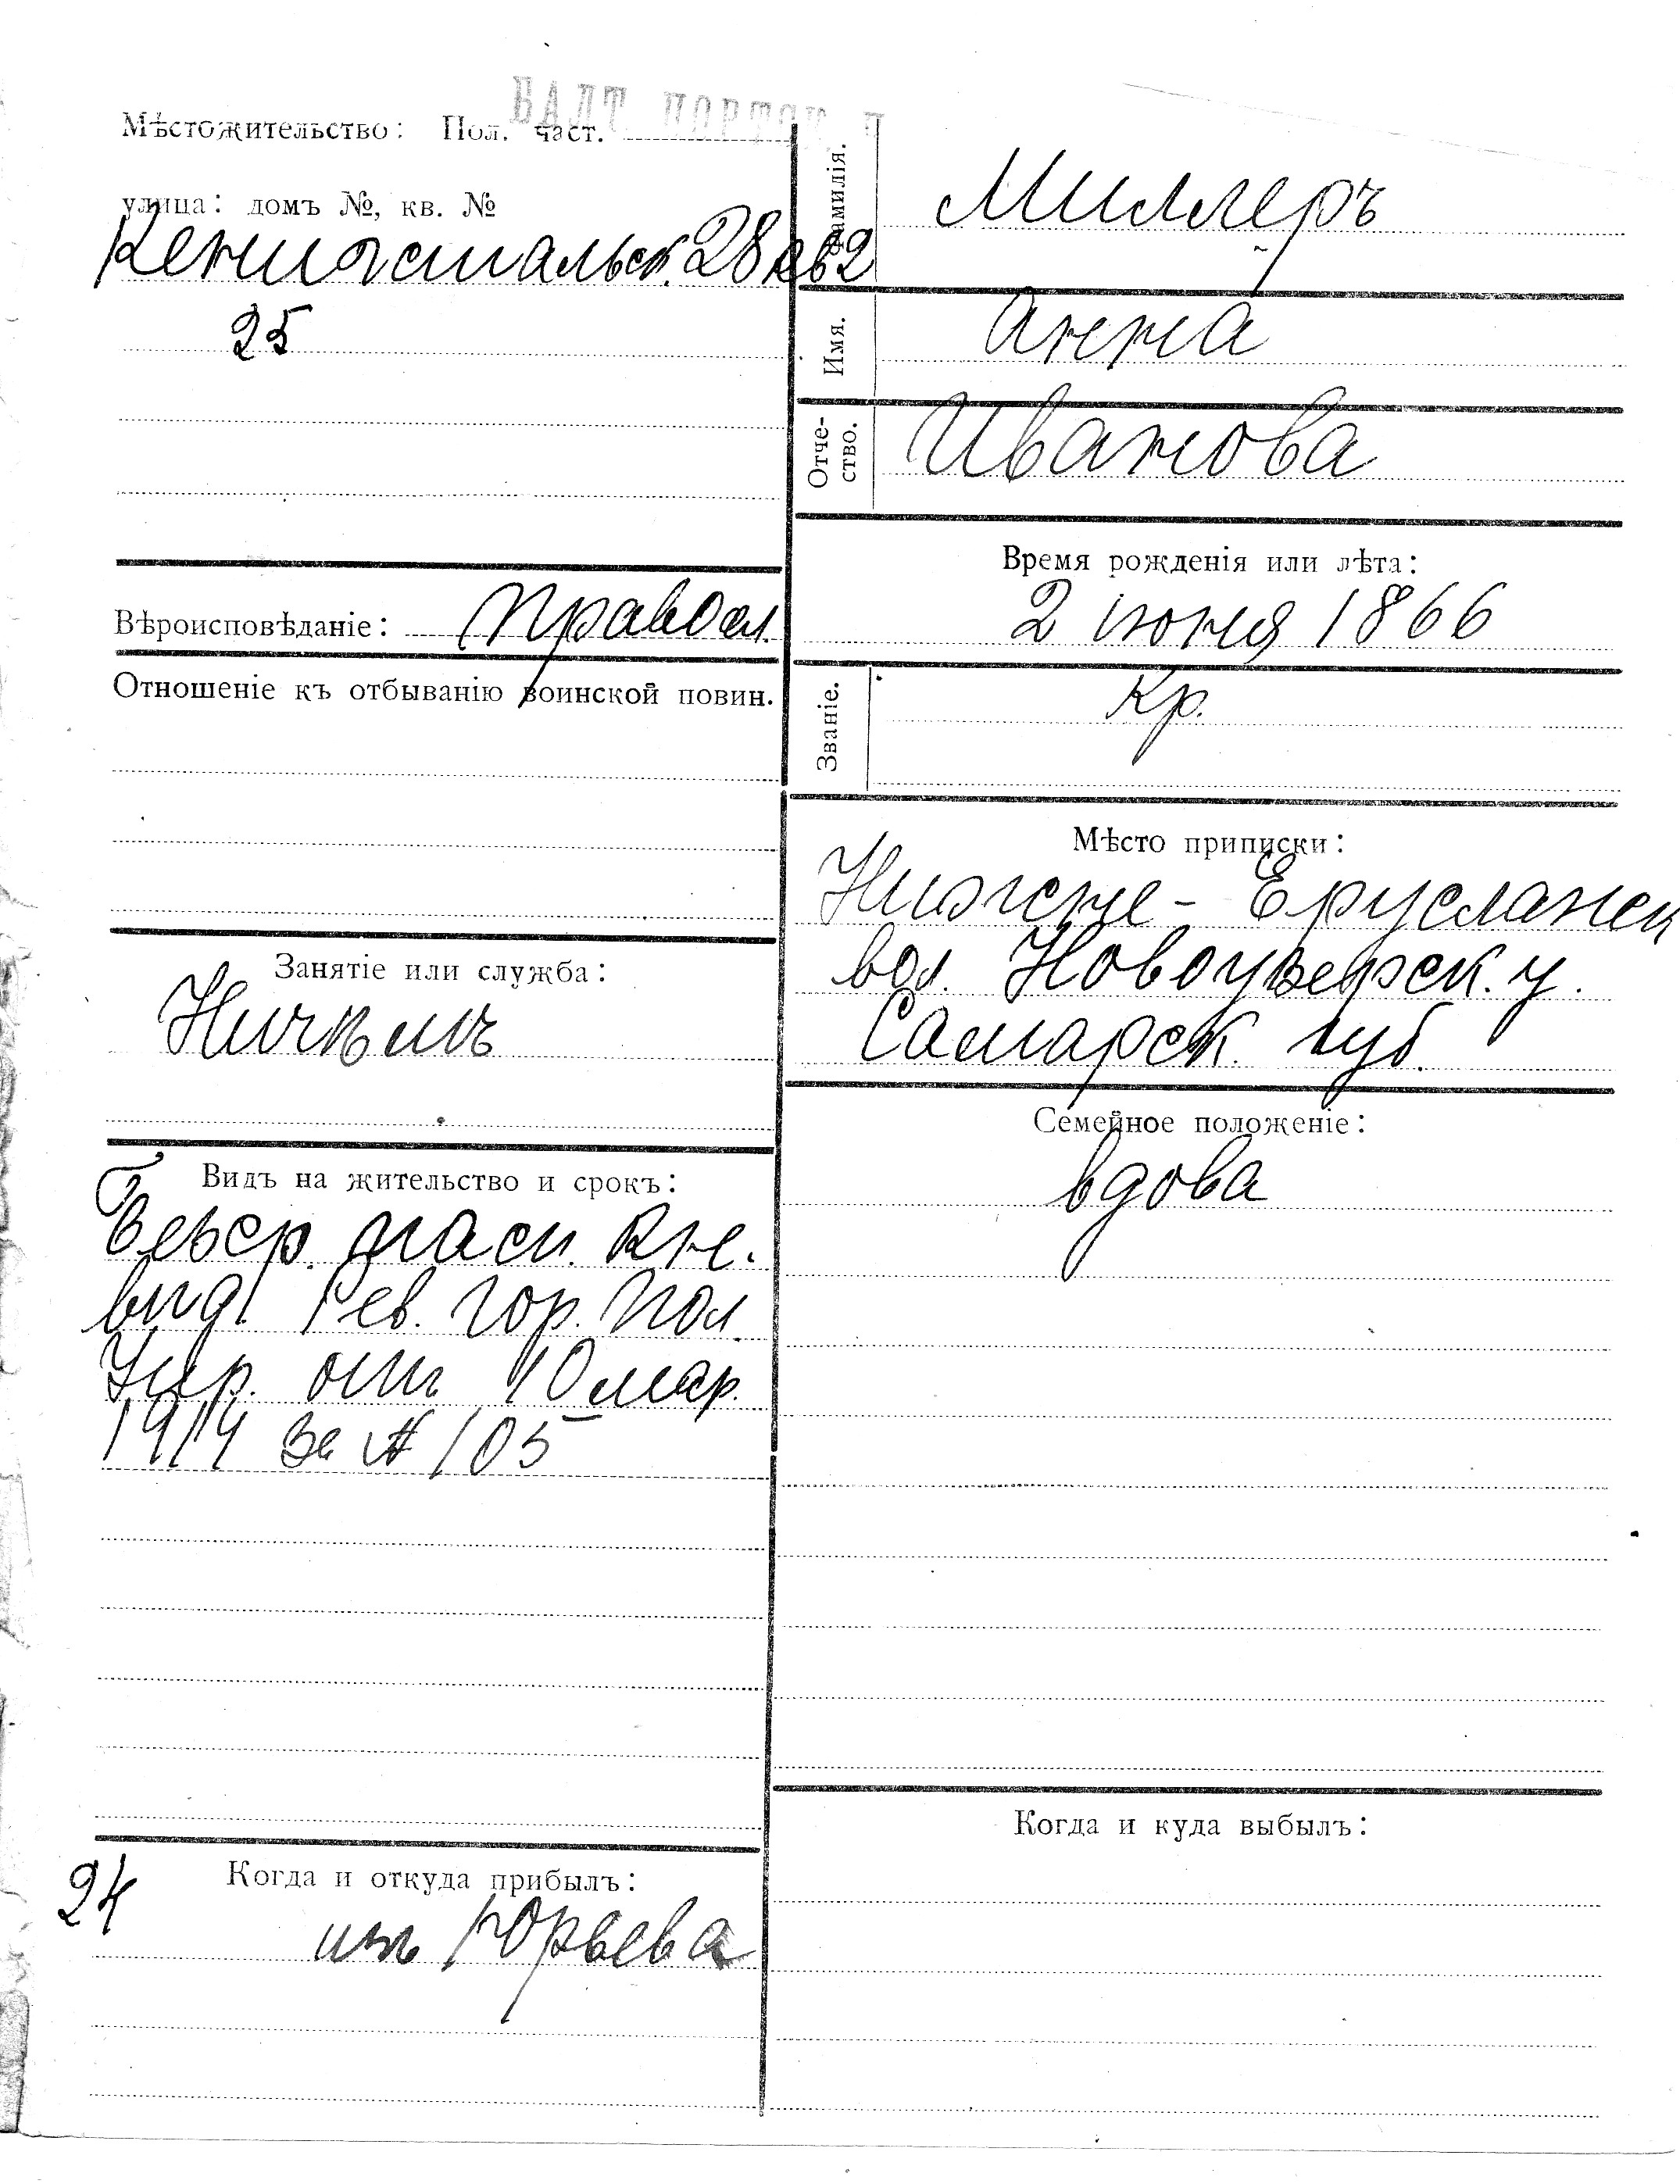 БАЛТ. ПОРТОВ. П
Мѣстожительство: Пол. част.
улица: домъ №, кв. №
28 кв 2
25
Вѣроисповѣданіе: Правосл.
Отношеніе къ отбыванію воинской повин.
Занятіе или служба:
Ничѣмъ
Видъ на жительство и срокъ:
Безср. пасп. кн.
видъ Рев. Гор. Пол.
Упр. отъ 10 мар.
1914 за № 105
24
Когда и откуда прибылъ:
изъ Юрьева
Фамилія.
Миллеръ
Имя.
Анна
Отче-
ство.
Иванова
Время рожденія или лѣта:
2 июня 1866
Званіе.
Кр.
Мѣсто приписки:
Нижне-Ерусланск
вол. Новоузенск. у.
Самарск. губ.
Семейное положеніе:
вдова
Когда и куда выбылъ: